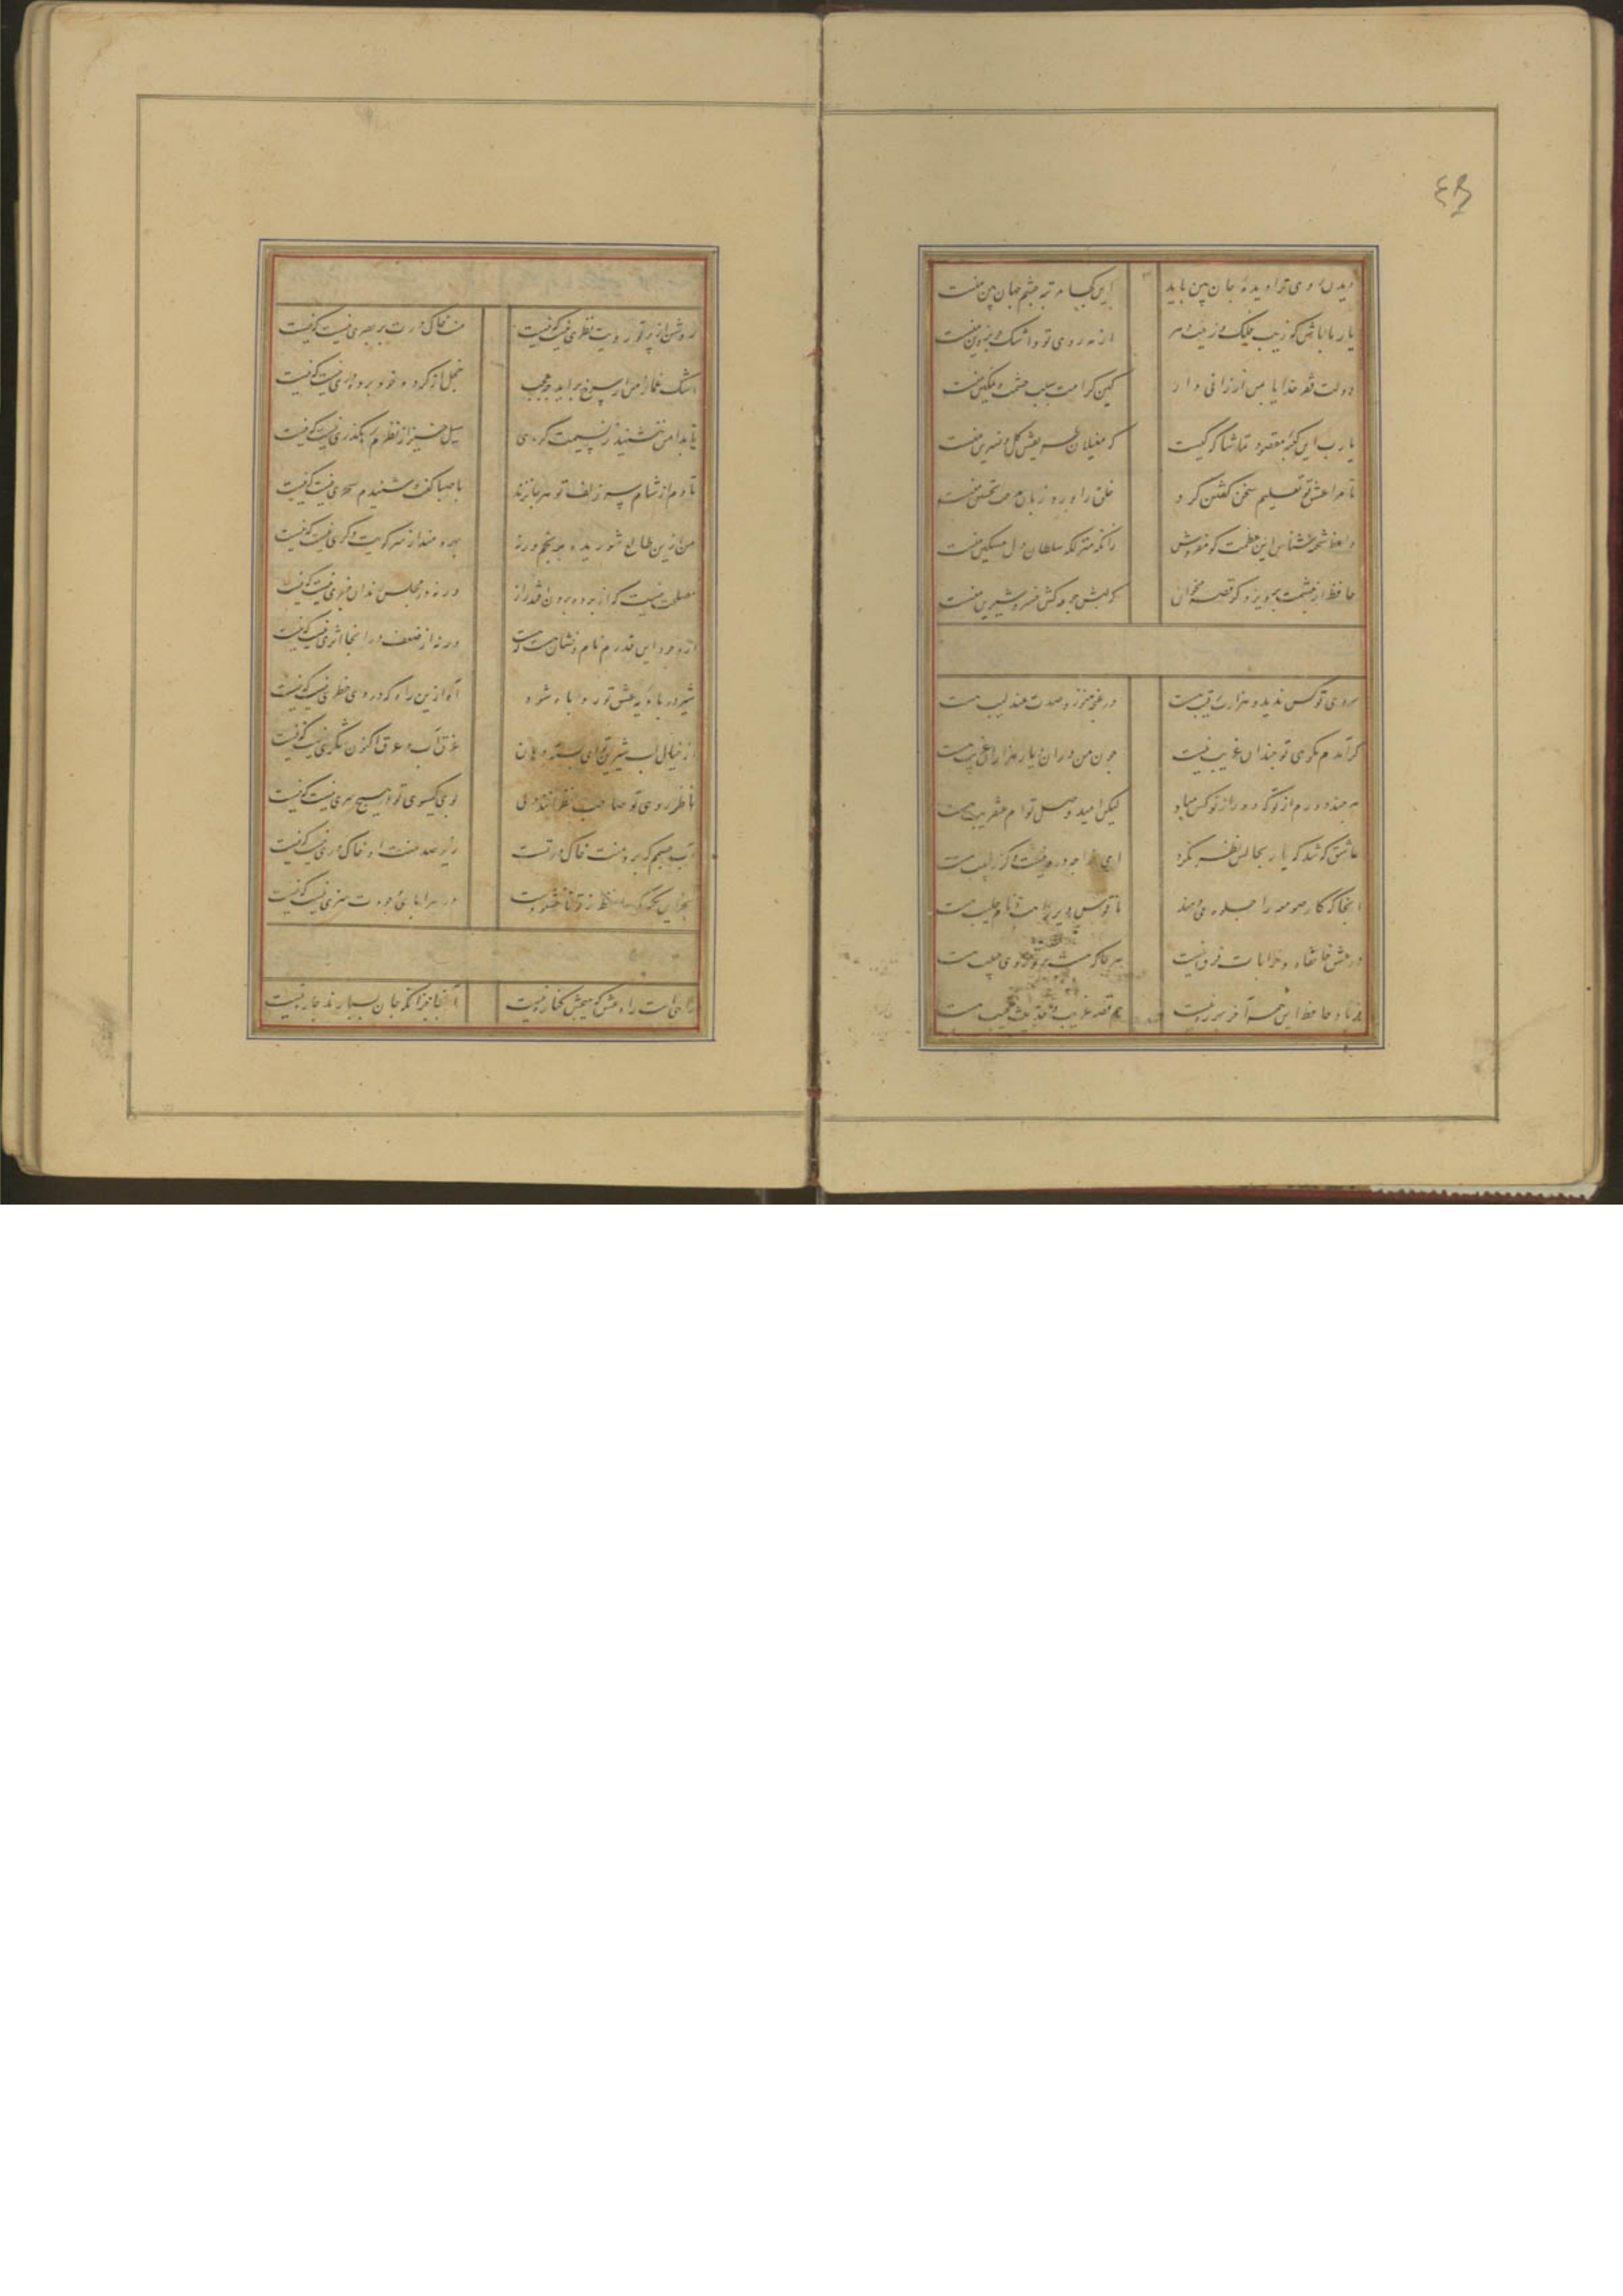 ۴۹
دیدن روی ترا دیدهٔ جان بین باید این کجا مرتبهٔ چشم جهان بین منست
یار ما باش که زیب فلک و زینت دهر از مه روی تو و اشک چو پروین منست
دولت فقر خدایا بمن ارزانی دار کین کرامت سبب حشمت و تمکین منست
یا رب این کعبهٔ مقصود تماشاگه کیست که مغیلان طریقش گل و نسرین منست
تا مرا عشق تو تعلیم سخن گفتن کرد خلق را ورد زبان مدحت و تحسین منست
واعظ شحنه شناس این عظمت گو مفروش زانکه منزلگه سلطان دل مسکین منست
حافظ از حشمت پرویز دگر قصه مخوان که لبش جرعه کش خسرو شیرین منست
روی تو کس ندید و هزارت رقیب هست در غنچهٔ هنوز و صدت عندلیب هست
گر آمدم بکوی تو چندان غریب نیست چون من دران دیار هزاران غریب هست
هر چند دورم از تو که دور از تو کس مباد لیکن امید وصل توام عنقریب هست
عاشق که شد که یار بحالش نظر نکرد ای خواجه درد نیست وگرنه طبیب هست
آنجا که کار صومعه را جلوه می‌دهند ناقوس دیر راهب و نام صلیب هست
در عشق خانقاه و خرابات فرق نیست هر جا که هست پرتو روی حبیب هست
فریاد حافظ این همه آخر بهرزه نیست هم قصهٔ غریب و حدیث عجیب هست
روشن از پرتو رویت نظری نیست که نیست منت خاک درت بر بصری نیست که نیست
اشک غماز من ار سرخ برآید چه عجب خجل از کردهٔ خود پرده دری نیست که نیست
تا بدامن ننشیند ز نسیمت گردی سیل خیز از نظرم رهگذری نیست که نیست
تا دم از شام سر زلف تو هر جا نزند با صبا گفت و شنیدم سحری نیست که نیست
من ازین طالع شوریده برنجم ورنه بهره مند از سر کویت دگری نیست که نیست
مصلحت نیست که از پرده برون افتد راز ورنه در مجلس رندان خبری نیست که نیست
از وجود این قدرم نام و نشان هست که هست ورنه از ضعف در آنجا اثری نیست که نیست
شیر در بادیهٔ عشق تو روباه شود آه ازین راه که در وی خطری نیست که نیست
از خیال لب شیرین تو ای بسته دهان غرق آب و عرق اکنون شکری نیست که نیست
ناظر روی تو صاحب نظرانند ولی بوی گیسوی تو در هیچ سری نیست که نیست
آب چشمم که برو منت خاک در تست زیر صد منت او خاک دری نیست که نیست
بجز این نکته که حافظ ز تو ناخشنودست در سراپای وجودت هنری نیست که نیست
راهی است راه عشق که هیچش کناره نیست آنجا جز آنکه جان بسپارند چاره نیست